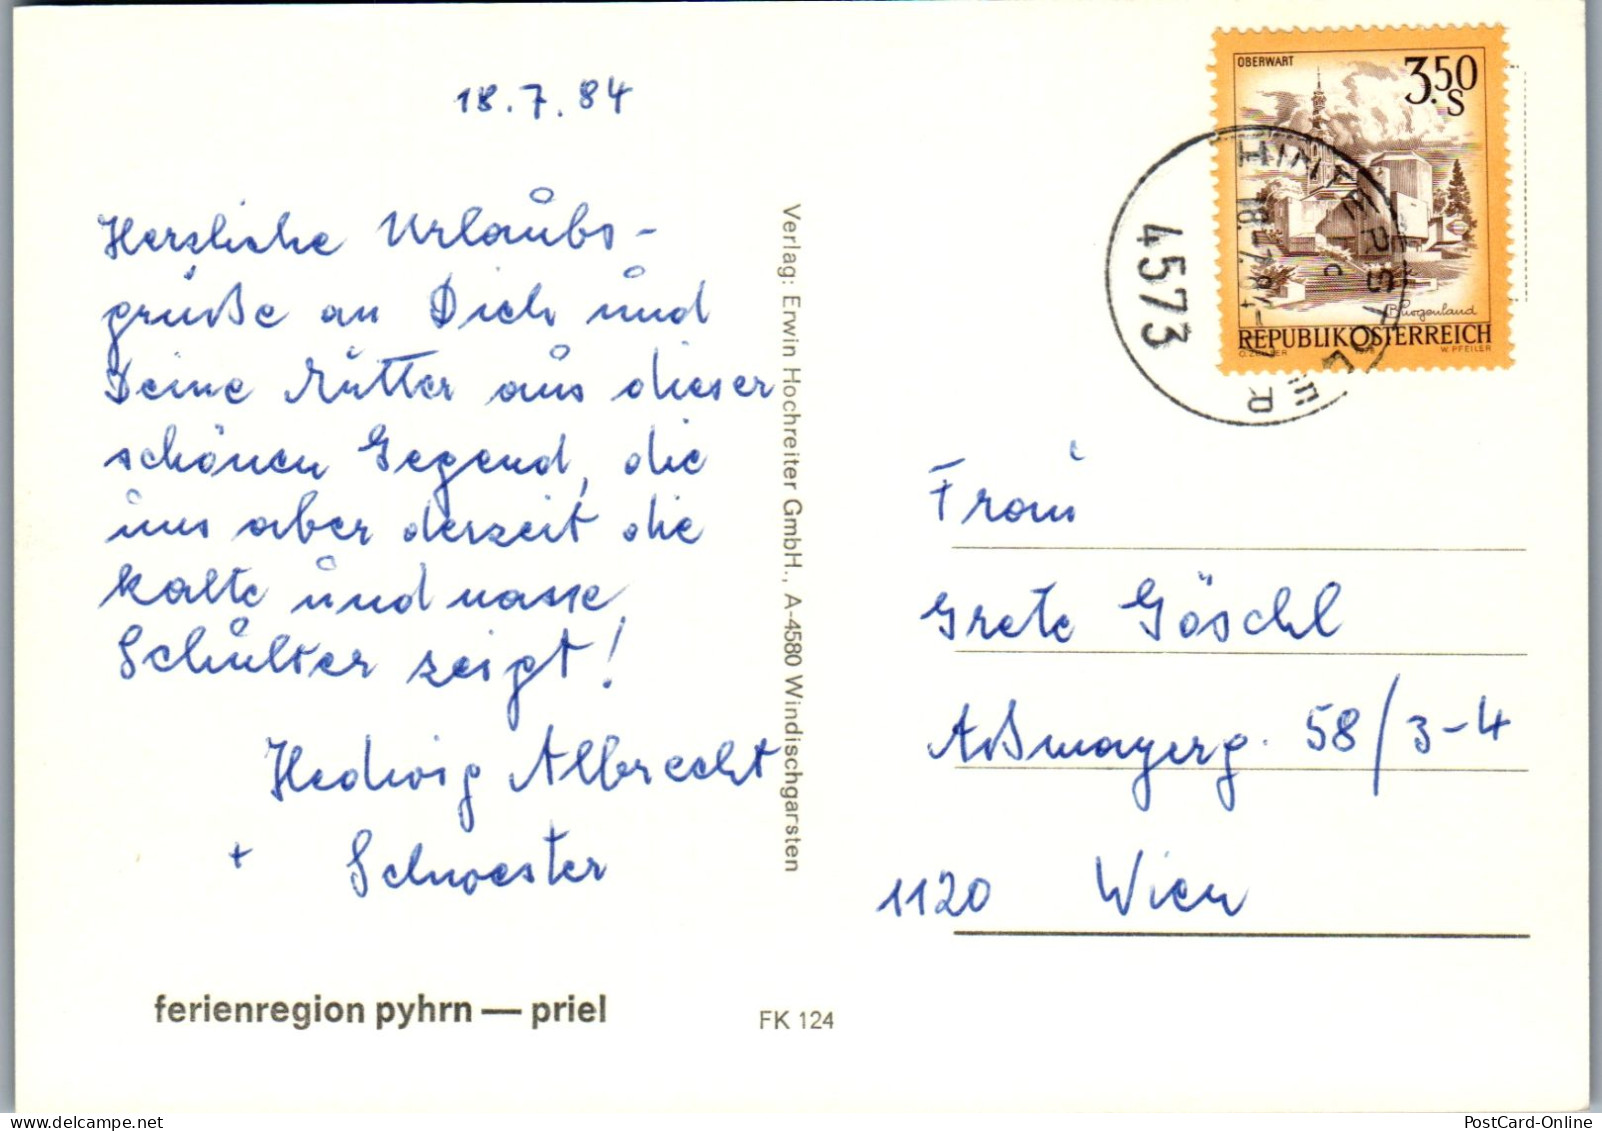 18.7.84
Herzliche Urlaubs-
grüße an Dich und
Deine Mutter aus dieser
schönen Gegend, die
uns aber derzeit die
kalte und nasse
Schulter zeigt!
Hedwig Albrecht
+ Schwester
ferienregion pyhrn — priel
Verlag: Erwin Hochreiter GmbH., A-4580 Windischgarsten
FK 124
OBERWART
3.50
S
Burgenland
REPUBLIK ÖSTERREICH
W. PFEILER
4573
HINTERSTODER
18. 7. 84
Frau
Grete Göschl
Aßmayerg. 58/3-4
1120 Wien
PostCard-Online